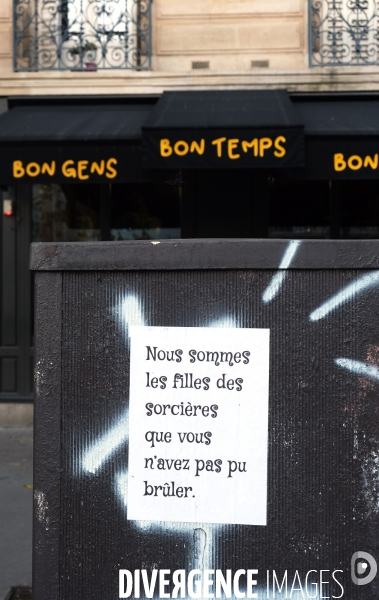 BON GENS
BON TEMPS
BON
Nous sommes
les filles des
sorcières
que vous
n'avez pas pu
brûler.
DIVERGENCE IMAGES